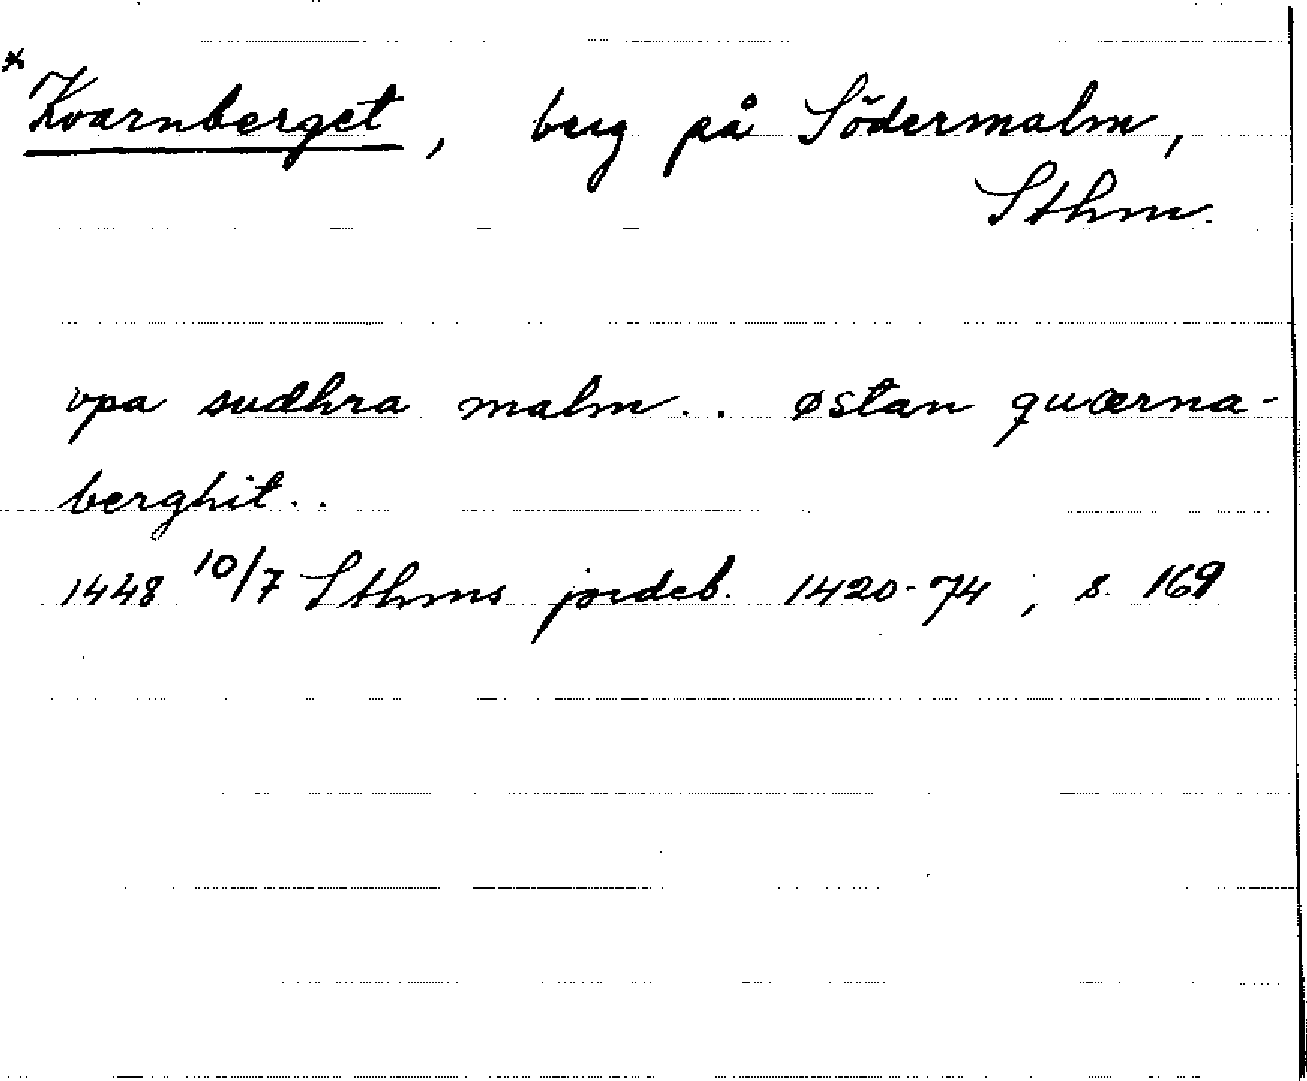 * Kvarnberget, berg på Södermalm,
Sthm.
vpa sudhra malm.. østan quærna-
berghit..
1448 10/7 Sthms jordeb. 1420-74, s. 169